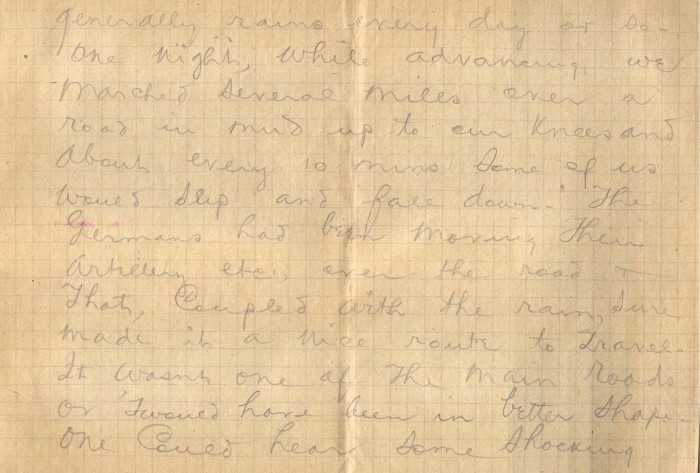 generally rains every day or so.
One night, while advancing, we
marched several miles over a
road in mud up to our knees and
about every 10 mins some of us
would slip and fall down. The
Germans had been moving their
artillery etc., over the road &
that, coupled with the rain, sure
made it a nice route to travel.
It wasn't one of the main roads
or 'twould have been in better shape.
One could hear some shocking